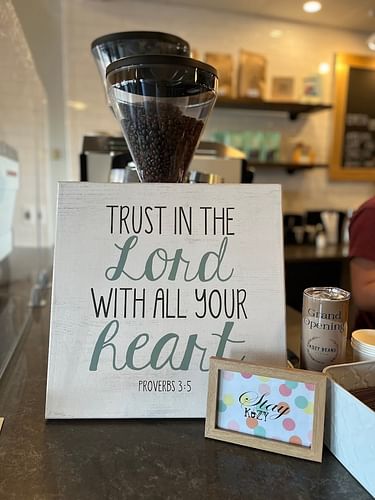 TRUST IN THE
Lord
WITH ALL YOUR
heart
PROVERBS 3:5
Grand
Opening
KOZY BEANS
Stay
KOZY